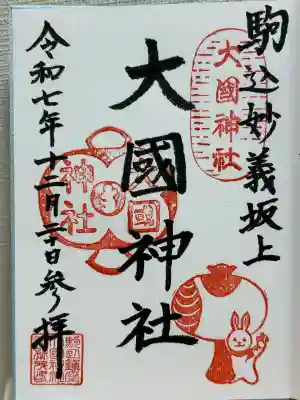 駒込妙義坂上
大國神社
大國神社
國
神社
令和七年十二月二十日参拝